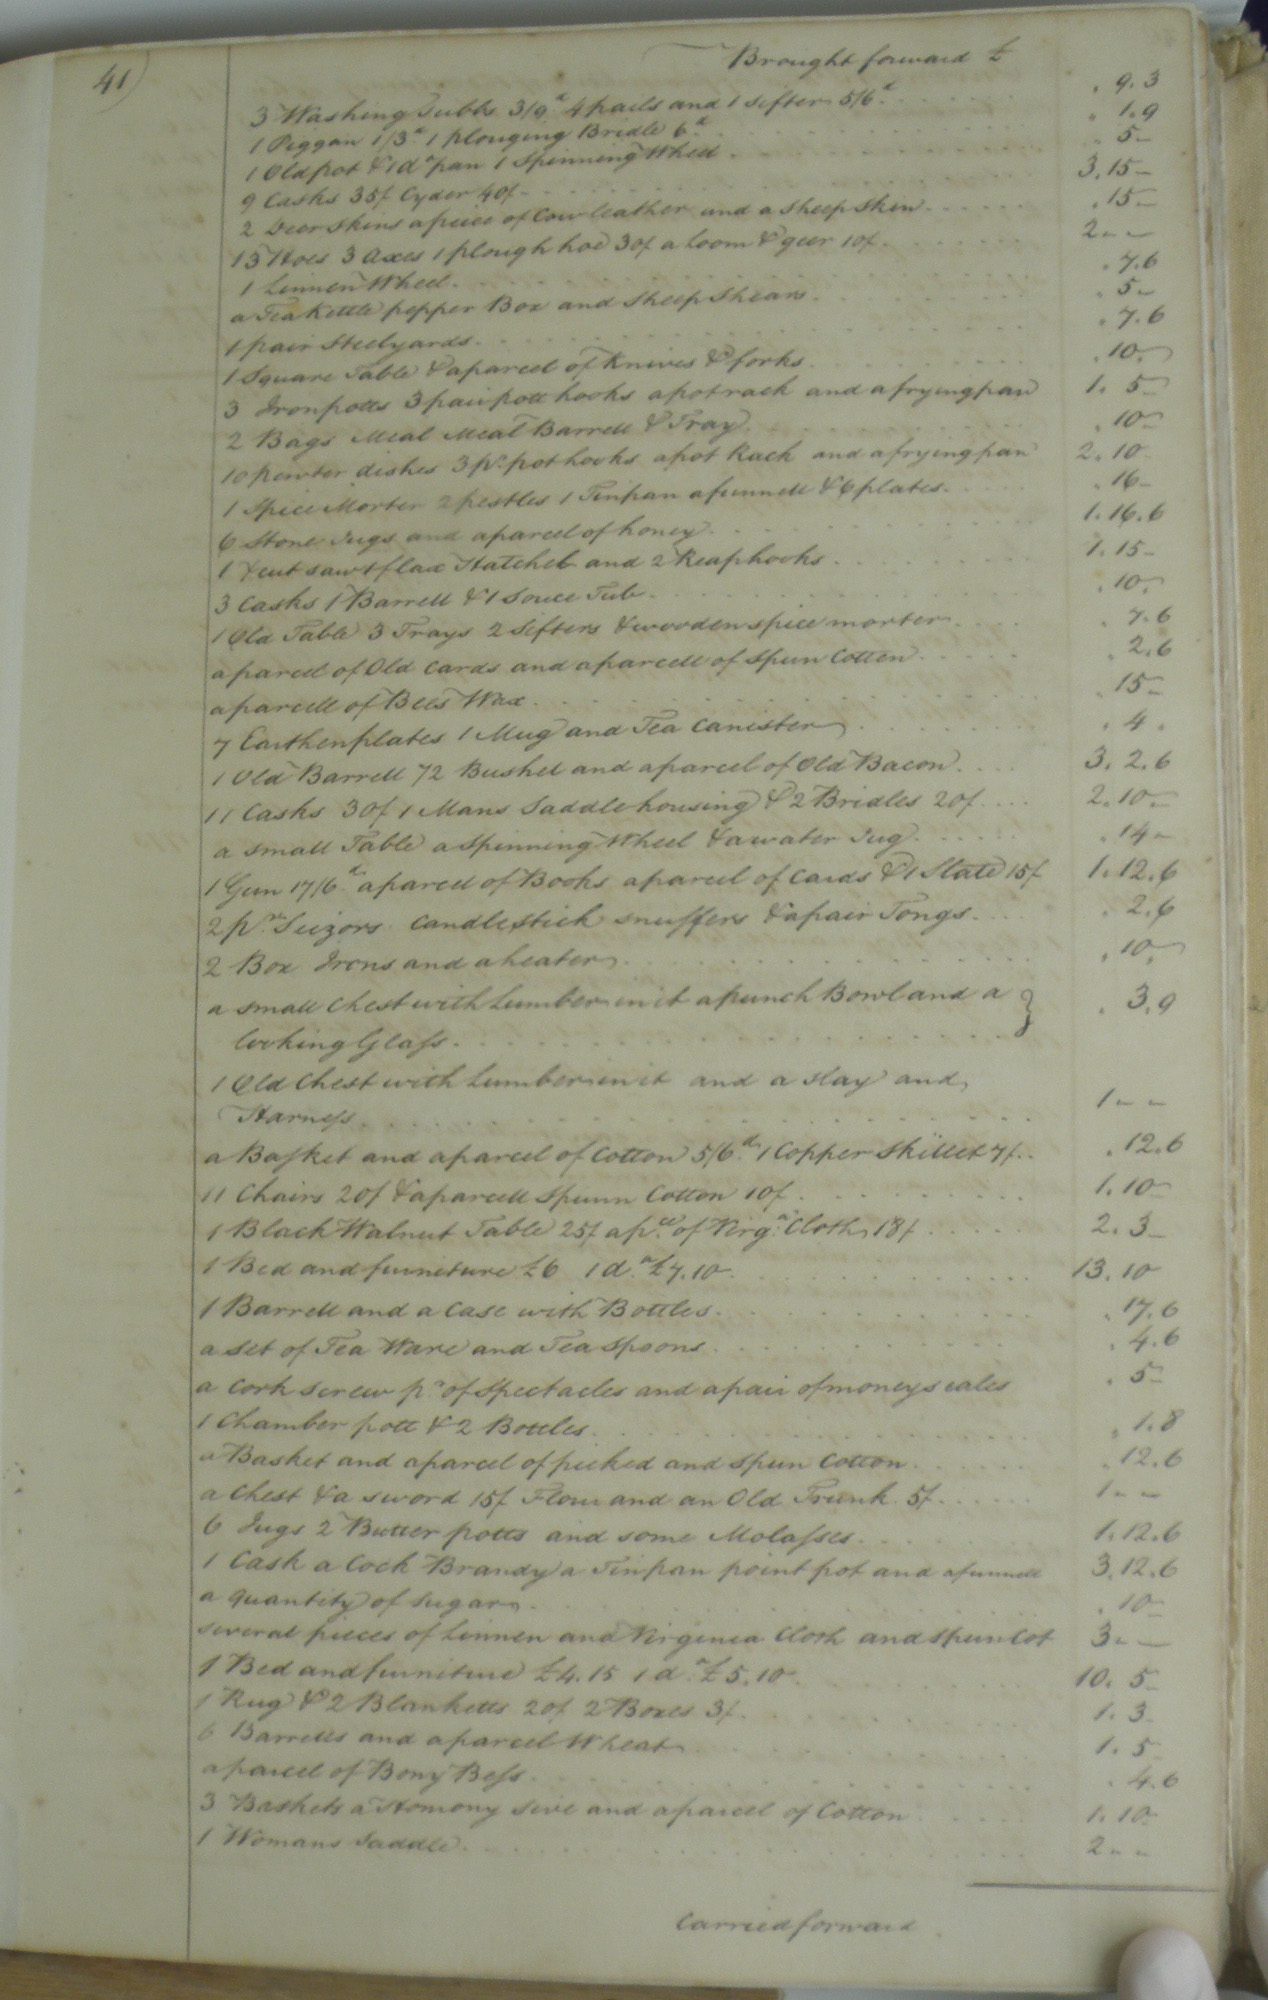 41)
Brought forward £
3 Washing Tubbs 3/9d 4 pails and 1 sifter 5/6d . 9.3
1 Piggan 1/3d 1 plouging Bridle 6d . 1.9
1 Old pot & 1 do pan 1 Spinning Wheel . 5-
9 Casks 35/ Cyder 40/ 3.15-
2 Deer Skins a peice of Cow leather and a Sheep Sken . 15-
13 Hoes 3 Axes 1 plough hoe 30/ a Loom & geer 10/ 2 - -
1 Linnen Wheel . 7.6
a Tea Kettle pepper Box and Sheep Shears . 5-
1 pair Steelyards . 7.6
1 Square Table & a parcel of Knives & forks . 10-
3 Iron potts 3 pair pott hooks a pot rack and a frying pan 1. 5-
2 Bags Meal Meal Barrell & Tray . 10-
10 pewter dishes 3 pr. pot hooks a pot Rack and a frying pan 2.10
1 Spice Morter 2 pestles 1 Tin pan a funnell & 6 plates . 16-
6 Stone Jugs and a parcel of honey 1.16.6
1 Xcut saw 1 flax Hatchel and 2 Reaphooks 1.15-
3 Casks 1 Barrell & 1 Souce Tub . 10-
1 Old Table 3 Trays 2 Sifters & wooden spice morter . 7.6
a parcel of Old Cards and a parcell of Spun Cotten . 2.6
a parcell of Bees Wax . 15-
7 Earthen plates 1 Mug and Tea Canister . 4.
1 Old Barrell 72 Bushel and a parcel of Old Bacon 3. 2.6
11 Casks 30/ 1 Mans Saddle housing & 2 Bridles 20/ 2.10-
a small Table a Spinning Wheel & a water Jug . 14-
1 Gun 17/6d a parcel of Books a parcel of Cards & 1 Slate 15/ 1.12.6
2 pr Scizors Candlestick snuffers & a pair Tongs . 2.6
2 Box Irons and a heater . 10-
a small Chest with Lumber in it a punch Bowl and a } . 3.9
looking Glass
1 Old Chest with Lumber in it and a Slay and
Harness 1 - -
a Basket and a parcel of Cotton 5/6d 1 Copper Skillet 7/ . 12.6
11 Chairs 20/ & a parcell Spunn Cotton 10/ 1.10-
1 Black Walnut Table 25/ a pce of Virga Cloth 18/ 2. 3-
1 Bed and furniture £6 1 do £7.10 13.10
1 Barrell and a Case with Bottles . 17.6
a set of Tea Ware and Tea Spoons . 4.6
a Cork screw pr of Spectacles and a pair of money scales . 5-
1 Chamber pott & 2 Bottles . 1.8
a Basket and a parcel of picked and spun Cotton . 12.6
a Chest & a sword 15/ Flour and an Old Trunk 5/ 1 - -
6 Jugs 2 Butter potts and some Molasses 1.12.6
1 Cask a Cock Brandy a Tin pan point pot and a funnell 3.12.6
a quantity of Sugar . 10-
several pieces of Linnen and Virginia Cloth and Spun Cot 3 - -
1 Bed and furniture £4.15 1 do £5.10 10. 5-
1 Rug & 2 Blanketts 20/ 2 Boxes 3/ 1. 3-
6 Barrells and a parcel Wheat 1. 5
a parcel of Bony Bess . 4.6
3 Baskets a Homony Seive and a parcel of Cotton 1.10-
1 Womans Saddle 2 - -
Carried forward